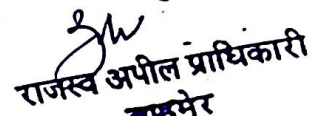 राजस्व अपील प्राधिकारी